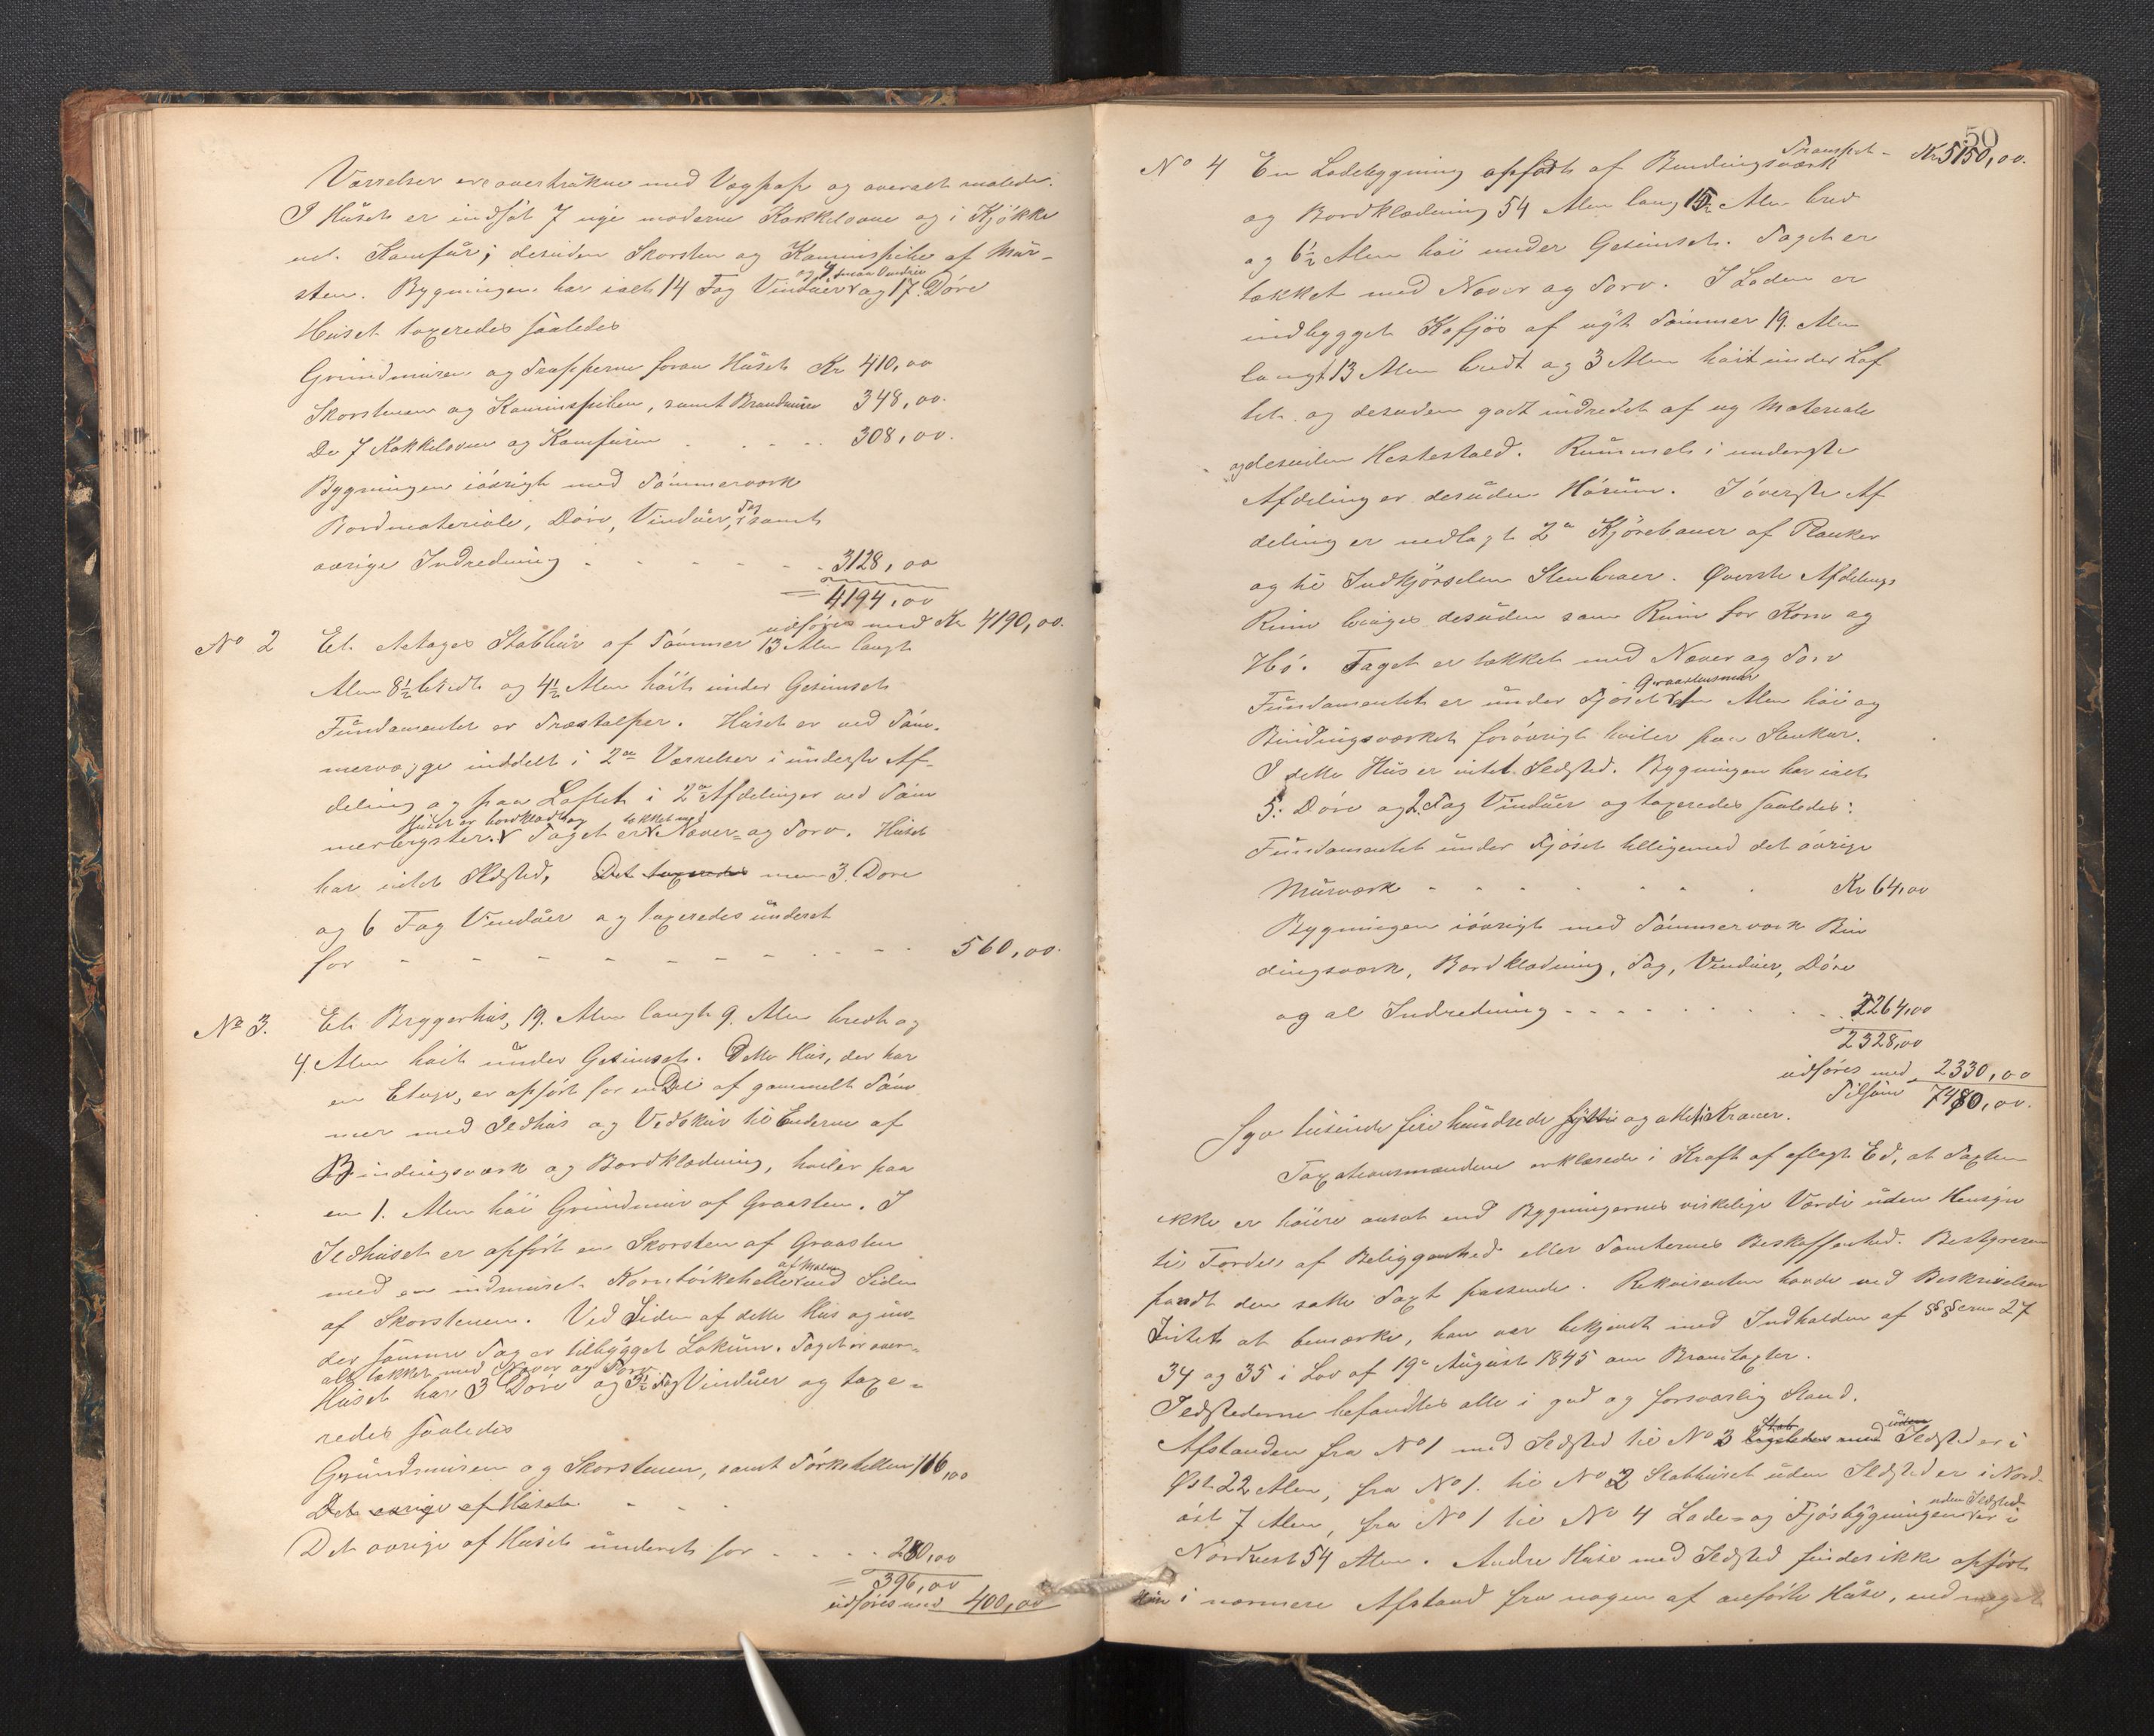 Værrelser ere overtrukne med Vægpap og overalt malede.
I Huset er indsat 7 nye moderne Kakkelovne og i Kjøkke
net Komfür; desuden Skorsten og Kaminspibe af Mür-
og 4 smaa Vinduer
sten. Bygningen har ialt 14 Fag Vinduer og 17 Døre
Huset taxeredes saaledes
Grundmuren og Trapperne foran Huset Kr 410,00
Skorstenen og Kaminspiben, samt Brandmure 348,00.
De 7 Kakkelovne og Komfuren . . . . 308,00.
Bygningen iøvrigt med Tømmerværk
Bordmateriale, Døre, Vinduer, Tag samt
øvrige Indredning . - - - - - 3128,00
= 4194,00
udføres med Kr 4190,00.
No 2 Et Etages Stabbur af Tømmer 13 Alen langt
Alen 8½ bredt og 4½ Alen høit under Gesimset
Fundamentet er Træstolper. Huset er ved Tøm-
mervægge inddelt i 2de Værrelser i underste Af-
deling og paa Loftet i 2de Afdelinger ved Tøm
Huset er bordklædt og tækket med
merbygster. Taget er Næver- og Torv. Huset
har intet Ildsted, Det taxeredes men 3 Døre
og 6 Fag Vinduer og taxeredes underet
for - - - - - - - - - 560,00.
No 3. Et Bryggerhus, 19. Alen langt 9. Alen bredt og
4. Alen høit under Gesimset. Dette Hus, der har
en Etage, er opført for en Del af gammelt Tøm
mer med Ildhus og Vedskur til Enderne af
Bindingsværk og Bordklædning, hviler paa
en 1. Alen høi Grundmur af Graasten. I
Ildhuset er opført en Skorsten af Graasten
af Malm
med en indmuret Korntørkehelle ved Siden
af Skorstenen. Ved Siden af dette Hus og un-
der samme Tag er tilbygget Lokum. Taget er over-
alt tækket med Næver og Torv
Huset har 3 Døre og 3½ Fag Vinduer og taxe-
redes saaledes
Grundmuren og Skorstenen, samt Tørkehellen 116,00
Det øvrige af Huset - - -
Det øvrige af Huset underet for . . . . 280,00
= 396,00
udføres med 400,00
50
Transport - Kr 5150,00.
No 4 En Ladebygning opført af Bindingsværk
og Bordklædning 54 Alen lang 15½ Alen bred
og 6½ Alen høi under Gesimset. Taget er
tækket med Næver og Torv. I Laden er
indbygget Kofjøs af nyt Tømmer 19. Alen
langt 13 Alen bredt og 3 Alen høit under Lof
tet og desuden godt indredet af ny Materiale
og desuden Hestestald. Rummet i underste
Afdeling er desuden Hørum. I øverste Af
deling er nedlagt 2de Kjørebaner af Planker
og til Indkjørselen Stenbroer. Øverste Afdelings
Rum bruges desuden som Rum for Korn og
Hø. Taget er tækket med Næver og Torv
Graastensmur
Fundamentet er under Fjøset 1 Alen høi og
Bindingsværket forøvrigt hviler paa Stenkar.
I dette Hus er intet Ildsted. Bygningen har ialt
5. Døre og 2 Fag Vinduer og taxeredes saaledes:
Fundamentet under Fjøset tilligemed det øvrige
Murværk - - - - - - Kr 64,00
Bygningen iøvrigt med Tømmerværk Bin
dingsværk, Bordklædning, Tag, Vinduer, Døre
og al Indredning - - - - - - 2264,00
2328,00
udføres med 2330,00
Tilsam 7480,00.
Syv tusinde fire hundrede fytti og otteti Kroner.
Taxationsmændene erklærede i Kraft af aflagt Ed, at Taxten
ikke er høiere ansat end Bygningernes virkelige Værdi uden Hensyn
til Fordel af Beliggenhed eller Tomternes Beskaffenhed. Bestyreren
fandt den satte Taxt passende. Rekvirenten havde ved Beskrivelsen
Intet at bemærke, han var bekjendt med Indholdet af §§erne 27
34 og 35 i Lov af 19de August 1845 om Brandtaxter.
Ildstederne befandtes alle i god og forsvarlig Stand.
Stab uden
Afstanden fra No 1 med Ildsted til No 3 ligeledes med Ildsted er i
Øst 22 Alen, fra No 1. til No 2 Stabburet uden Ildsted er i Nord-
uden Ildsted
øst 7 Alen, fra No 1 til No 4 Lade- og Fjøsbygningen er i
Nordvest 54 Alen. Andre Huse med Ildsted findes ikke opført
i nærmere Afstand fra nogen af anførte Huse, end meget